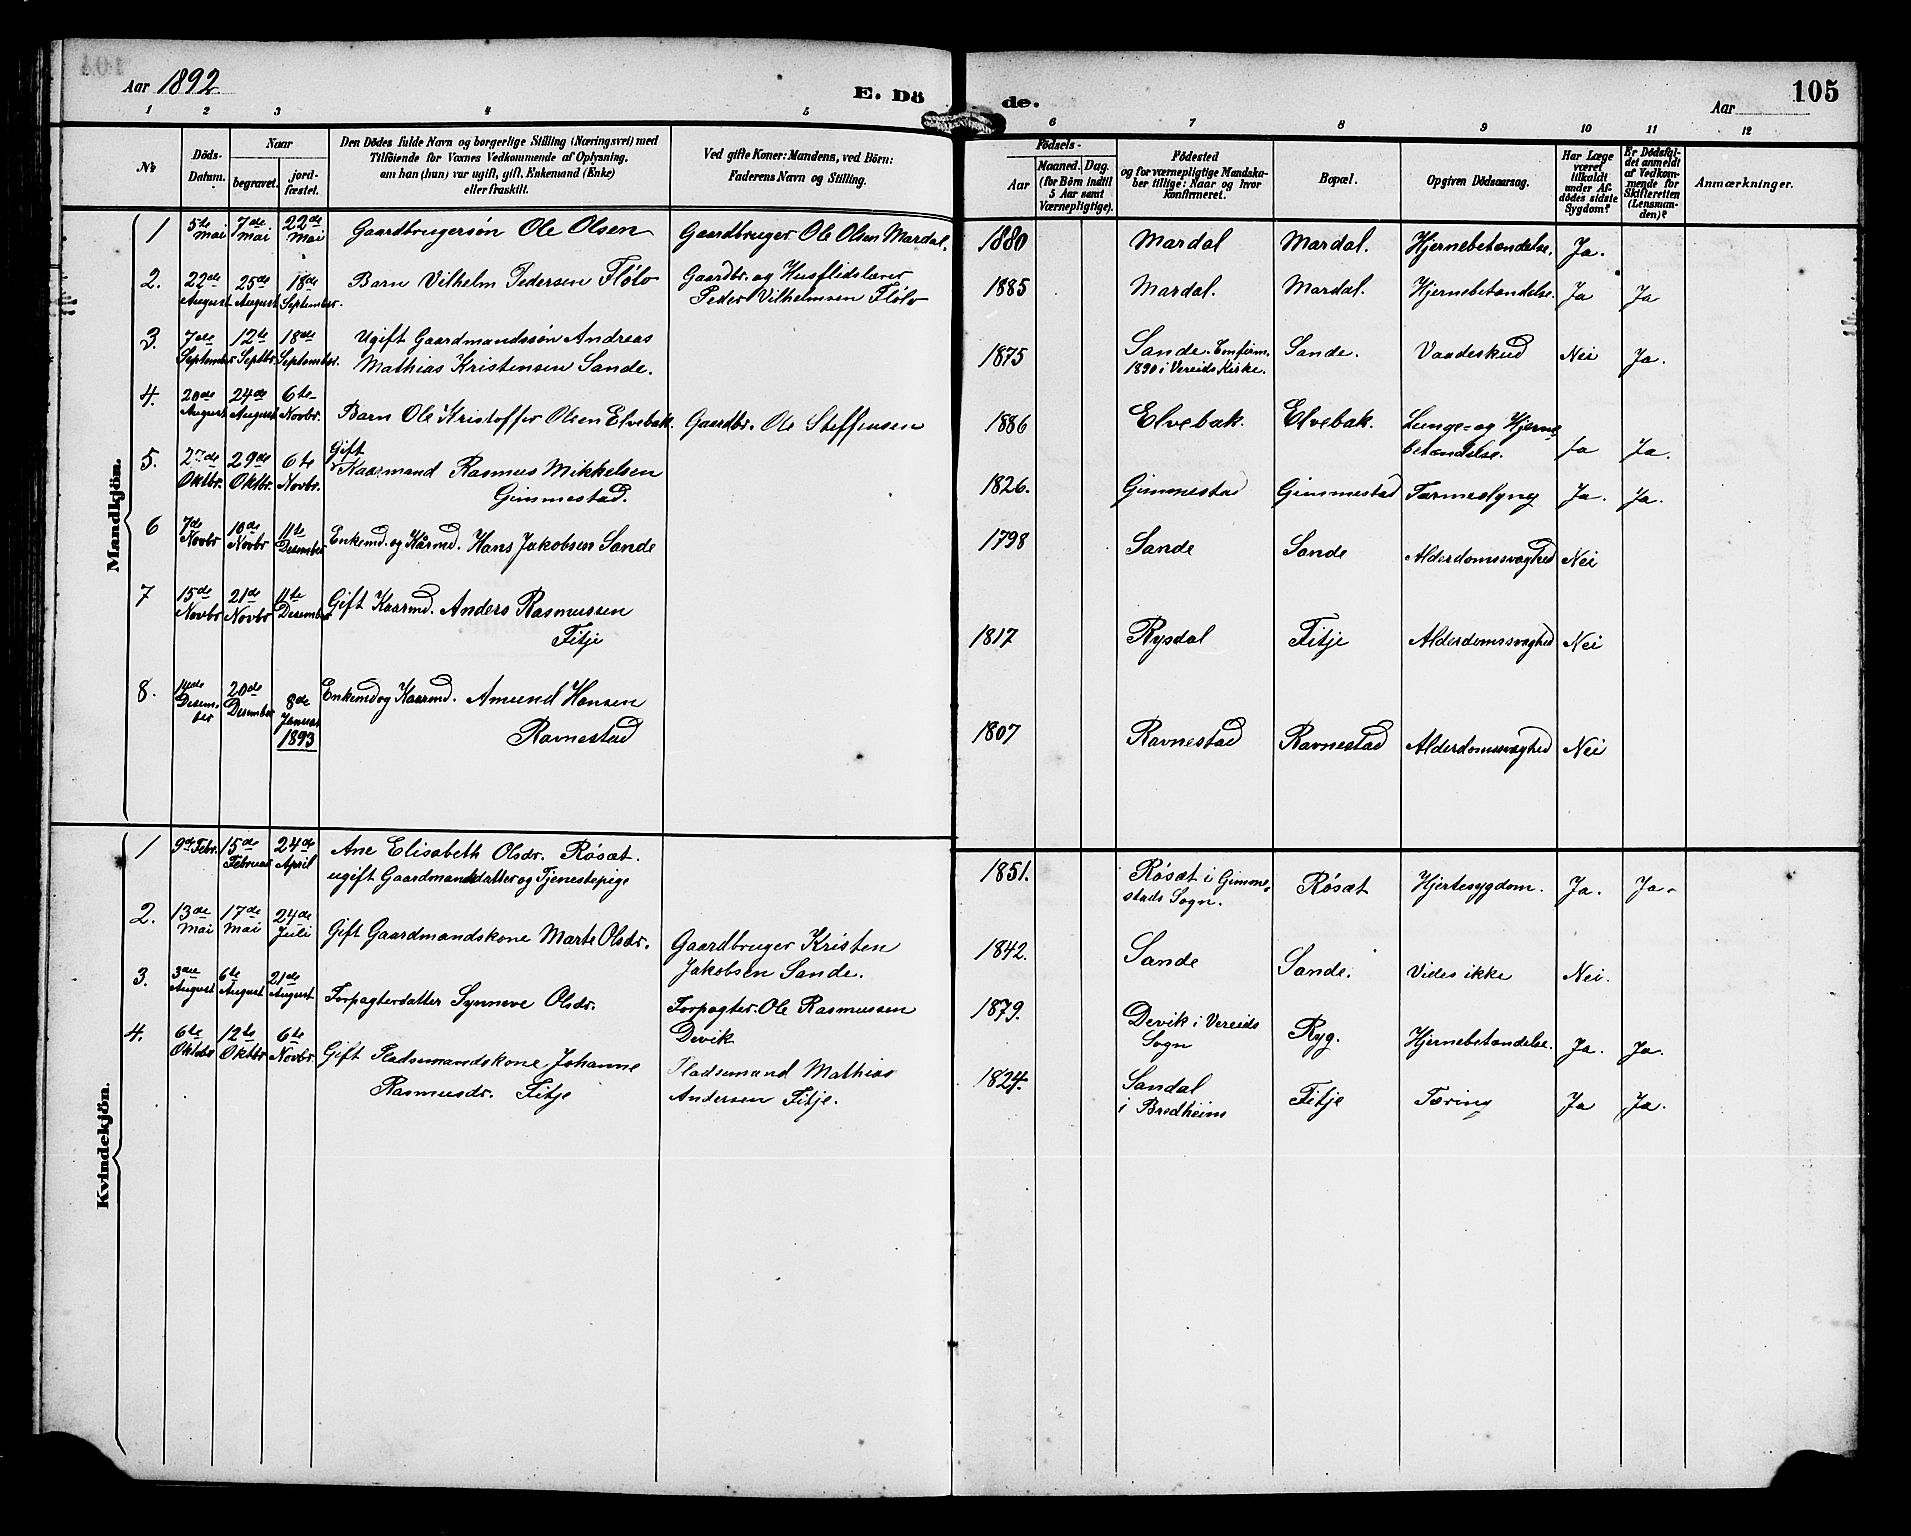 Aar 1892.
E. Dö
de.
Aar
105
1 2 3 4 5
6 7 8 9 10 11 12
No
Döds-Datum.
Naar
begravet.
jord-fæstet.
Den Dödes fulde Navn og borgerlige Stilling (Næringsvei) med
Tilföiende for Voxnes Vedkommende af Oplysning,
om han (hun) var ugift, gift, Enkemand (Enke)
eller fraskilt.
Ved gifte Koner: Mandens, ved Börn:
Faderens Navn og Stilling.
Födsels-
Aar
Maaned. Dag.
(for Börn indtil
5 Aar samt
Værnepligtige).
Födested
og for værnepligtige Mandska-
ber tillige: Naar og hvor
konfirmeret.
Bopæl.
Opgiven Dödsaarsag.
Har Læge
været
tilkaldt
under Af-
dödes sidste
Sygdom?
Er Dödsfal-
det anmeldt
af Vedkom-
mende for
Skifteretten
(Lensman-
den)?
Anmærkninger.
Mandkjön.
1 5te Mai 7de Mai 22de Mai Gaardbrugersøn Ole Olsen Gaardbruger Ole Olsen Mardal. 1880 Mardal Mardal. Hjernebetændelse. Ja.
2. 22de August 25de August 18de September. Barn Vilhelm Pedersen Flølo Gaardbr. og Husflidslærer
Peder Vilhelmsen Flølo 1885 Mardal. Mardal. Hjernebetændelse. Ja Ja
3. 7de September 12te Septbr. 18de September. Ugift Gaardmandssøn Andreas
Mathias Kristensen Sande. 1875 Sande. Konfirm.
1890 i Vereids Kirke. Sande. Vaadeskud Nei Ja.
4. 20de August 24de August 6te Novbr. Barn Ole Kristoffer Olsen Elvebak. Gaardbr. Ole Steffensen 1886 Elvebak. Elvebak. Lunge- og Hjerne-
betændelse. Ja Ja.
5. 27de Oktbr. 29de Oktbr. 6te Novbr. Gift
Kaarmand Rasmus Mikkelsen
Gimmestad. 1826. Gimmestad Gimmestad Tarmeslyng Ja. Ja.
6 7de Novbr 10de Novbr 11te Desember Enkemd. og Kårmd. Hans Jakobsen Sande 1798 Sande Sande Alderdomssvaghed Nei
7 15de Novbr 21de Novbr 11te Desember Gift Kaarmd. Anders Rasmussen
Fitje 1817 Rysdal Fitje Alderdomssvaghed Nei
8. 14de Desem-
ber 20de Desember 8de Januar 1893 Enkemd og Kaarmd. Amund Hansen
Ravnestad 1807 Ravnestad Ravnestad Alderdomssvaghed Nei
Kvindekjön.
1 9de Febr. 15de Februar 24de April Ane Elisabeth Olsdr. Røsæt.
ugift Gaardmandsdatter og Tjenestepige 1851. Røsæt i Gimme-
stads Sogn. Røsæt Hjertesygdom. Ja. Ja.
2. 13de Mai 17de Mai 24de Juli Gift Gaardmandskone Marte Olsdr. Gaardbruger Kristen
Jakobsen Sande. 1842. Sande Sande. Vides ikke Nei.
3. 3die August 6te August 21de August Forpagterdatter Synneve Olsdr. Forpagter. Ole Rasmussen
Devik 1879. Devik i Vereids
Sogn Ryg. Hjernebetændelse. Ja. Ja.
4. 6te Oktober 12te Oktbr 6te Novbr Gift Pladsemandskone Johanne
Rasmusdr. Fitje Pladsemand Mathias
Andersen Fitje. 1824. Sandal
i Bredheim Fitje Tæring Ja Ja.